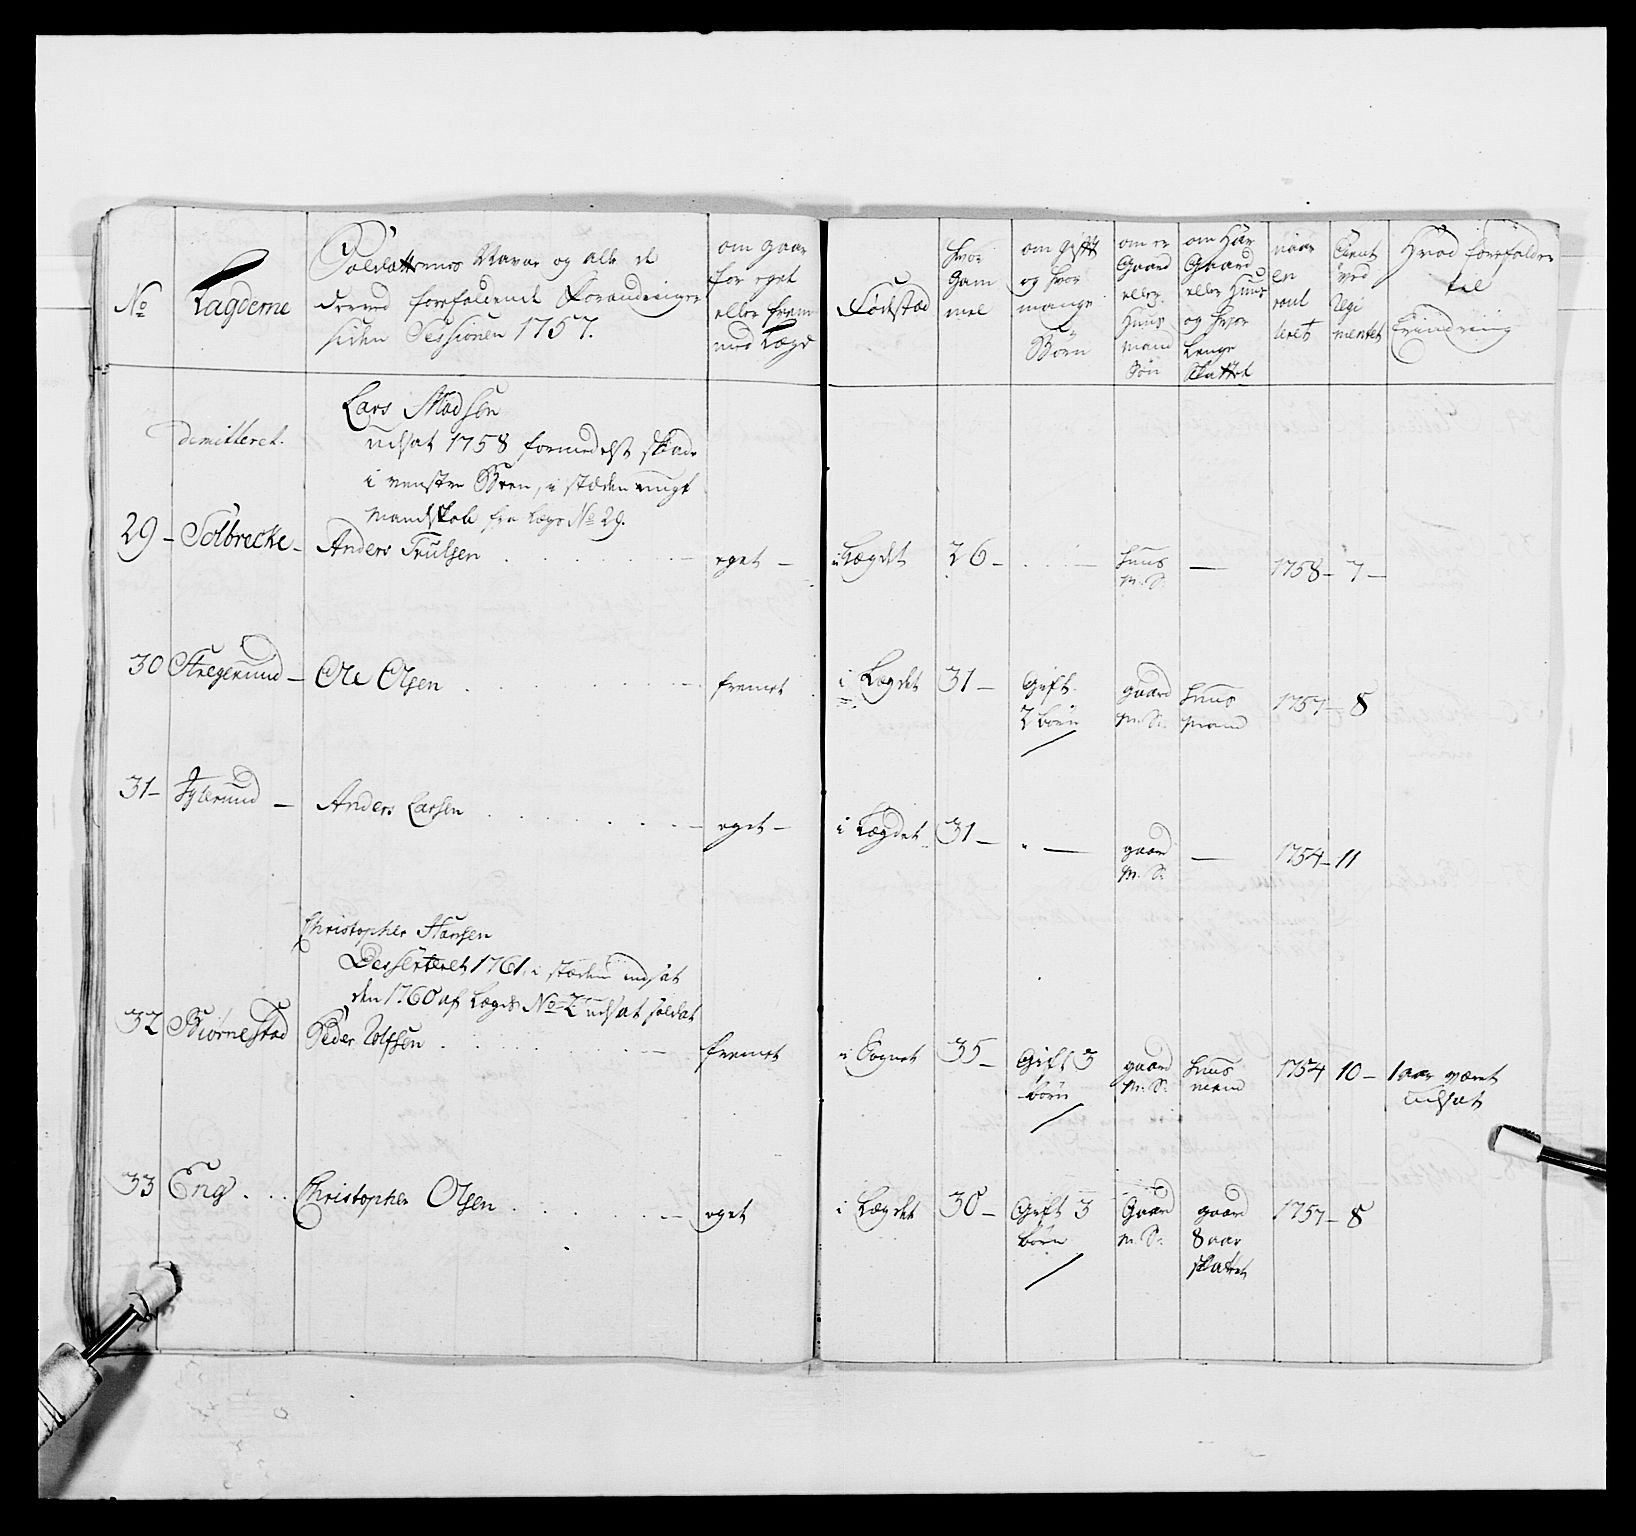 No
Lægderne
Soldatternes Navne og alle de
derved forefaldende Forandringer
siden Sessionen 1757.
om gaar
for eget
eller frem
med Lægd
Fødstæd
hvor
Gam
mel
om gift
og hvor
mange
Børn
om er
Gaard
eller
Huus
mand
Søn
om Har
Gaard
eller Huus
og hvor
Lenge
Skattet
naar
en
roul
leret
tient
ved
Regi
mentet
Hvad forefalder
til
Erindring
dimitteret.
Lars Madsen
udsat 1758 formedelst skade
i venstre Been, i stæden
Mandskab fra Lægd No 29.
29 – Solbrecke – Anders Trulsen
eget –
i Lægdet
26 –
huus
m. S:
—
1758 –
7 –
30 Stregerund – Ole Olsen
fremet
i Lægdet
31 –
Gift
2 børn
gaard
m. S:
huus
mand
1757 –
8
31 – Fylerund – Anders Larsen
eget –
i Lægdet
31 –
—
gaard
m. S:
—
1754 –
11
Christopher Hansen
Desserteret 1761, i stæden indsat
den 1760 af Lægd No 2 udsat soldat
32 Biørnestad Peder Rolfsen
fremet
i Sognet
35 –
Gift 3
børn
gaard
m. S:
huus
mand
1754
10 –
1 aar været
udsat
33 Eng Christopher Olsen
eget
i Lægdet
30 –
Gift 3
børn
Gaard
m. S:
gaard
8 aar
skattet
1757 –
8